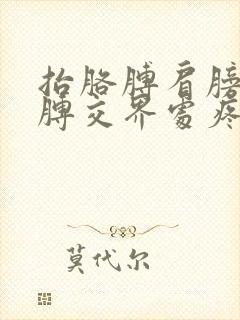 抬胳膊肩膀
膊交界處疼
莫代尔